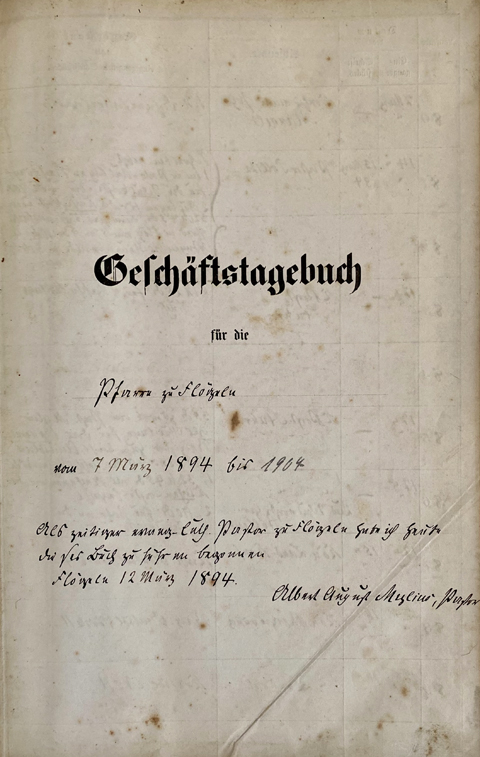 Geschäftstagebuch
für die
Pfarre zu Flögeln
vom 7 März 1894 bis 1904
Als zeitiger evang-luth. Pastor zu Flögeln habe ich heute
dieses Buch zu führen begonnen
Flögeln 12 März 1894.
Albert August, Pastor